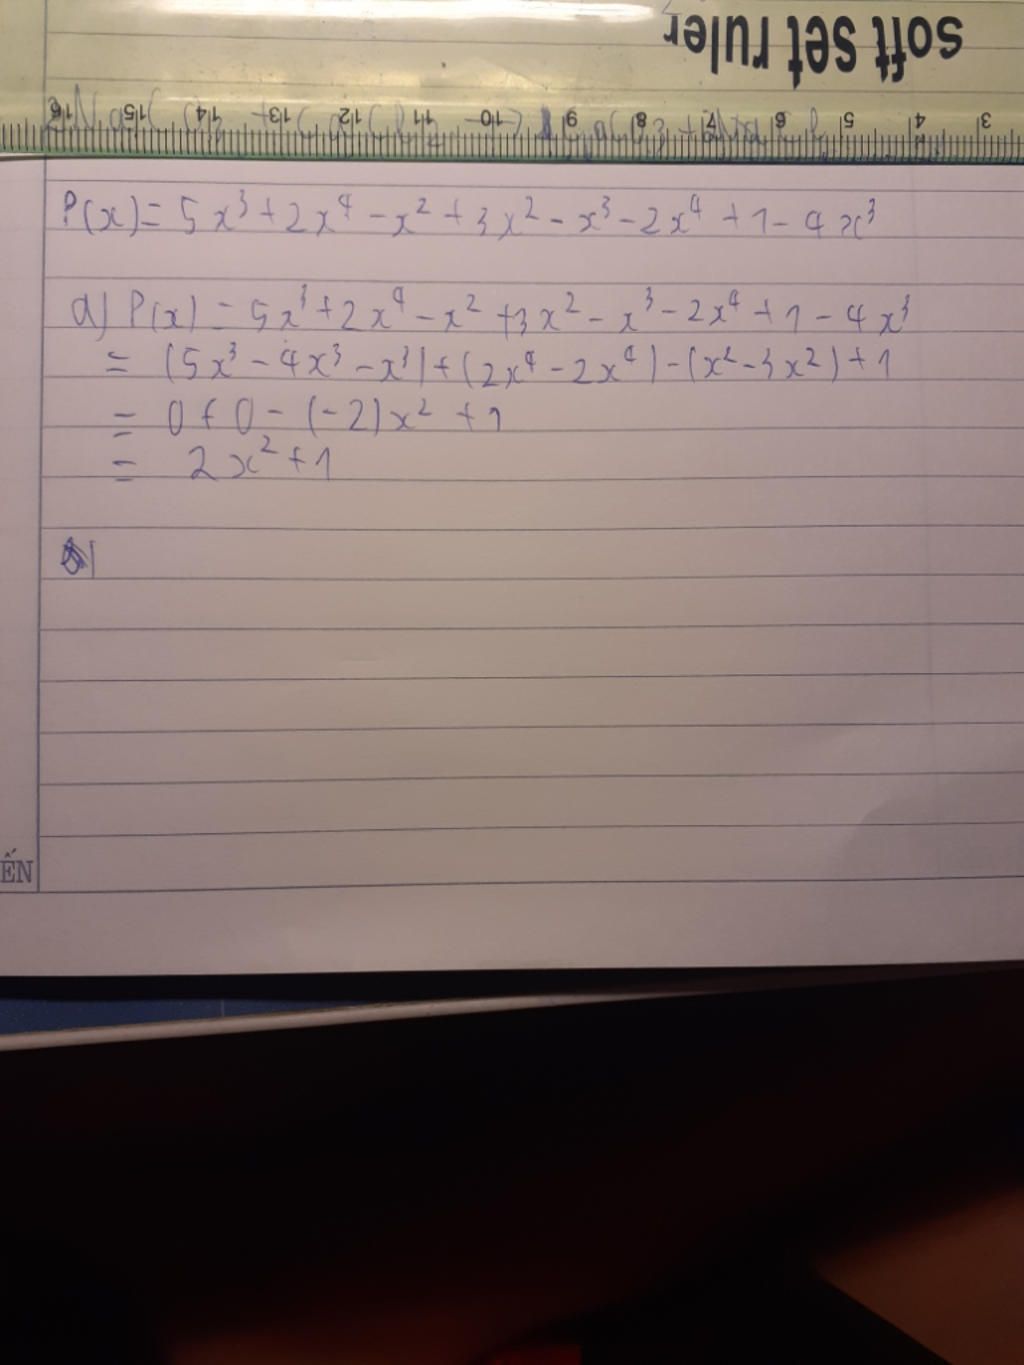 soft set ruler
16 15 14 13 12 11 10 9 8 7 6 5 4 3
P(x) = 5x³ + 2x⁴ - x² + 3x² - x³ - 2x⁴ + 1 - 4x³
a) P(x) = 5x³ + 2x⁴ - x² + 3x² - x³ - 2x⁴ + 1 - 4x³
= (5x³ - 4x³ - x³) + (2x⁴ - 2x⁴) - (x² - 3x²) + 1
= 0 + 0 - (-2)x² + 1
= 2x² + 1
ẾN